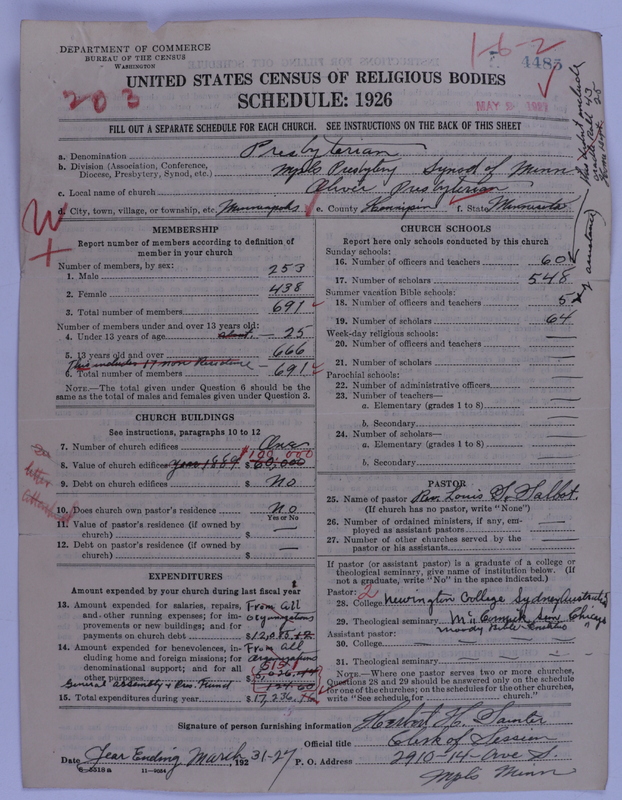 DEPARTMENT OF COMMERCE
BUREAU OF THE CENSUS
WASHINGTON
1-6-2
4485
203
MAY
UNITED STATES CENSUS OF RELIGIOUS BODIES
SCHEDULE: 1926
FILL OUT A SEPARATE SCHEDULE FOR EACH CHURCH. SEE INSTRUCTIONS ON THE BACK OF THIS SHEET
a. Denomination Presbyterian
b. Division (Association, Conference, Diocese, Presbytery, Synod, etc.) Mpls Presbytery Synod of Minn
c. Local name of church Oliver Presbyterian
d. City, town, village, or township, etc. Minneapolis e. County Hennipin f. State Minnesota
MEMBERSHIP
Report number of members according to definition of
member in your church
Number of members, by sex:
1. Male 253
2. Female 438
3. Total number of members 691
Number of members under and over 13 years old:
4. Under 13 years of age about 25
5. 13 years old and over 666
This includes 17 non Resident
6. Total number of members 691
NOTE.—The total given under Question 6 should be the
same as the total of males and females given under Question 3.
CHURCH BUILDINGS
See instructions, paragraphs 10 to 12
7. Number of church edifices One
$100 000
8. Value of church edifices year 1889 $ 60,000
letter
9. Debt on church edifices $ No
10. Does church own pastor's residence? No
Yes or No
11. Value of pastor's residence (if owned by
church) $ —
12. Debt on pastor's residence (if owned by
church) $ —
EXPENDITURES
Amount expended by your church during last fiscal year
13. Amount expended for salaries, repairs, From all
and other running expenses; for im- organizations
provements or new buildings; and for
payments on church debt $ 12,085.12
14. Amount expended for benevolences, in- From all
cluding home and foreign missions; for organizations
denominational support; and for all 5151
other purposes
General Assembly Fund 124.00
15. Total expenditures during year $ 17,236
CHURCH SCHOOLS
Report here only schools conducted by this church
Sunday schools:
16. Number of officers and teachers 60
17. Number of scholars 548
Summer vacation Bible schools:
18. Number of officers and teachers 5
19. Number of scholars 64
Week-day religious schools:
20. Number of officers and teachers —
21. Number of scholars —
Parochial schools:
22. Number of administrative officers —
23. Number of teachers—
a. Elementary (grades 1 to 8) —
b. Secondary —
24. Number of scholars—
a. Elementary (grades 1 to 8) —
b. Secondary —
PASTOR
25. Name of pastor Rev. Louis S. Talbot.
(If church has no pastor, write "None")
26. Number of ordained ministers, if any, em-
ployed as assistant pastors —
27. Number of other churches served by the
pastor or his assistants —
If pastor (or assistant pastor) is a graduate of a college or
theological seminary, give name of institution below. (If
not a graduate, write "No" in the space indicated.)
Pastor: 2
28. College Newington College Sydney Australia
29. Theological seminary McCormick Sem Chicago
Moody Bible Institute "
Assistant pastor:
30. College —
31. Theological seminary —
NOTE.—Where one pastor serves two or more churches,
Questions 28 and 29 should be answered only on the schedule
for one of the churches; on the schedules for the other churches,
write "See schedule, for church."
Signature of person furnishing information Herbert H.
Official title Clerk of Session
Date Year Ending March 192 31-27 P. O. Address 2910-14-Ave S.
Mpls Minn
11—9084